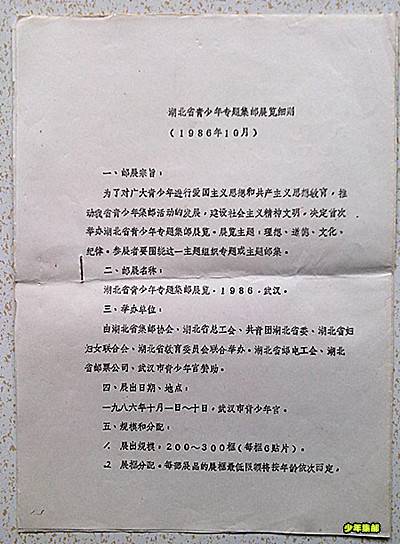 湖北省青少年专题集邮展览细则
（1986年10月）
一、邮展宗旨：
为了对广大青少年进行爱国主义思想和共产主义思想教育，推
动我省青少年集邮活动的发展，建设社会主义精神文明，决定首次
举办湖北省青少年专题集邮展览。展览主题：理想、道德、文化、
纪律。参展者要围绕这一主题组织专题或主题邮集。
二、邮展名称：
湖北省青少年专题集邮展览．1986．武汉。
三、举办单位：
由湖北省集邮协会、湖北省总工会、共青团湖北省委、湖北省妇
妇女联合会、湖北省教育委员会联合举办。湖北省邮电工会、湖北
省邮票公司、武汉市青少年宫赞助。
四、展出日期、地点：
一九八六年十月一日～十日，武汉市青少年宫。
五、规模和分配：
1. 展出规模：200～300框（每框6贴片）。
2. 展框分配。每部展品的展框最低限额将按年龄依次而定，
少年集邮